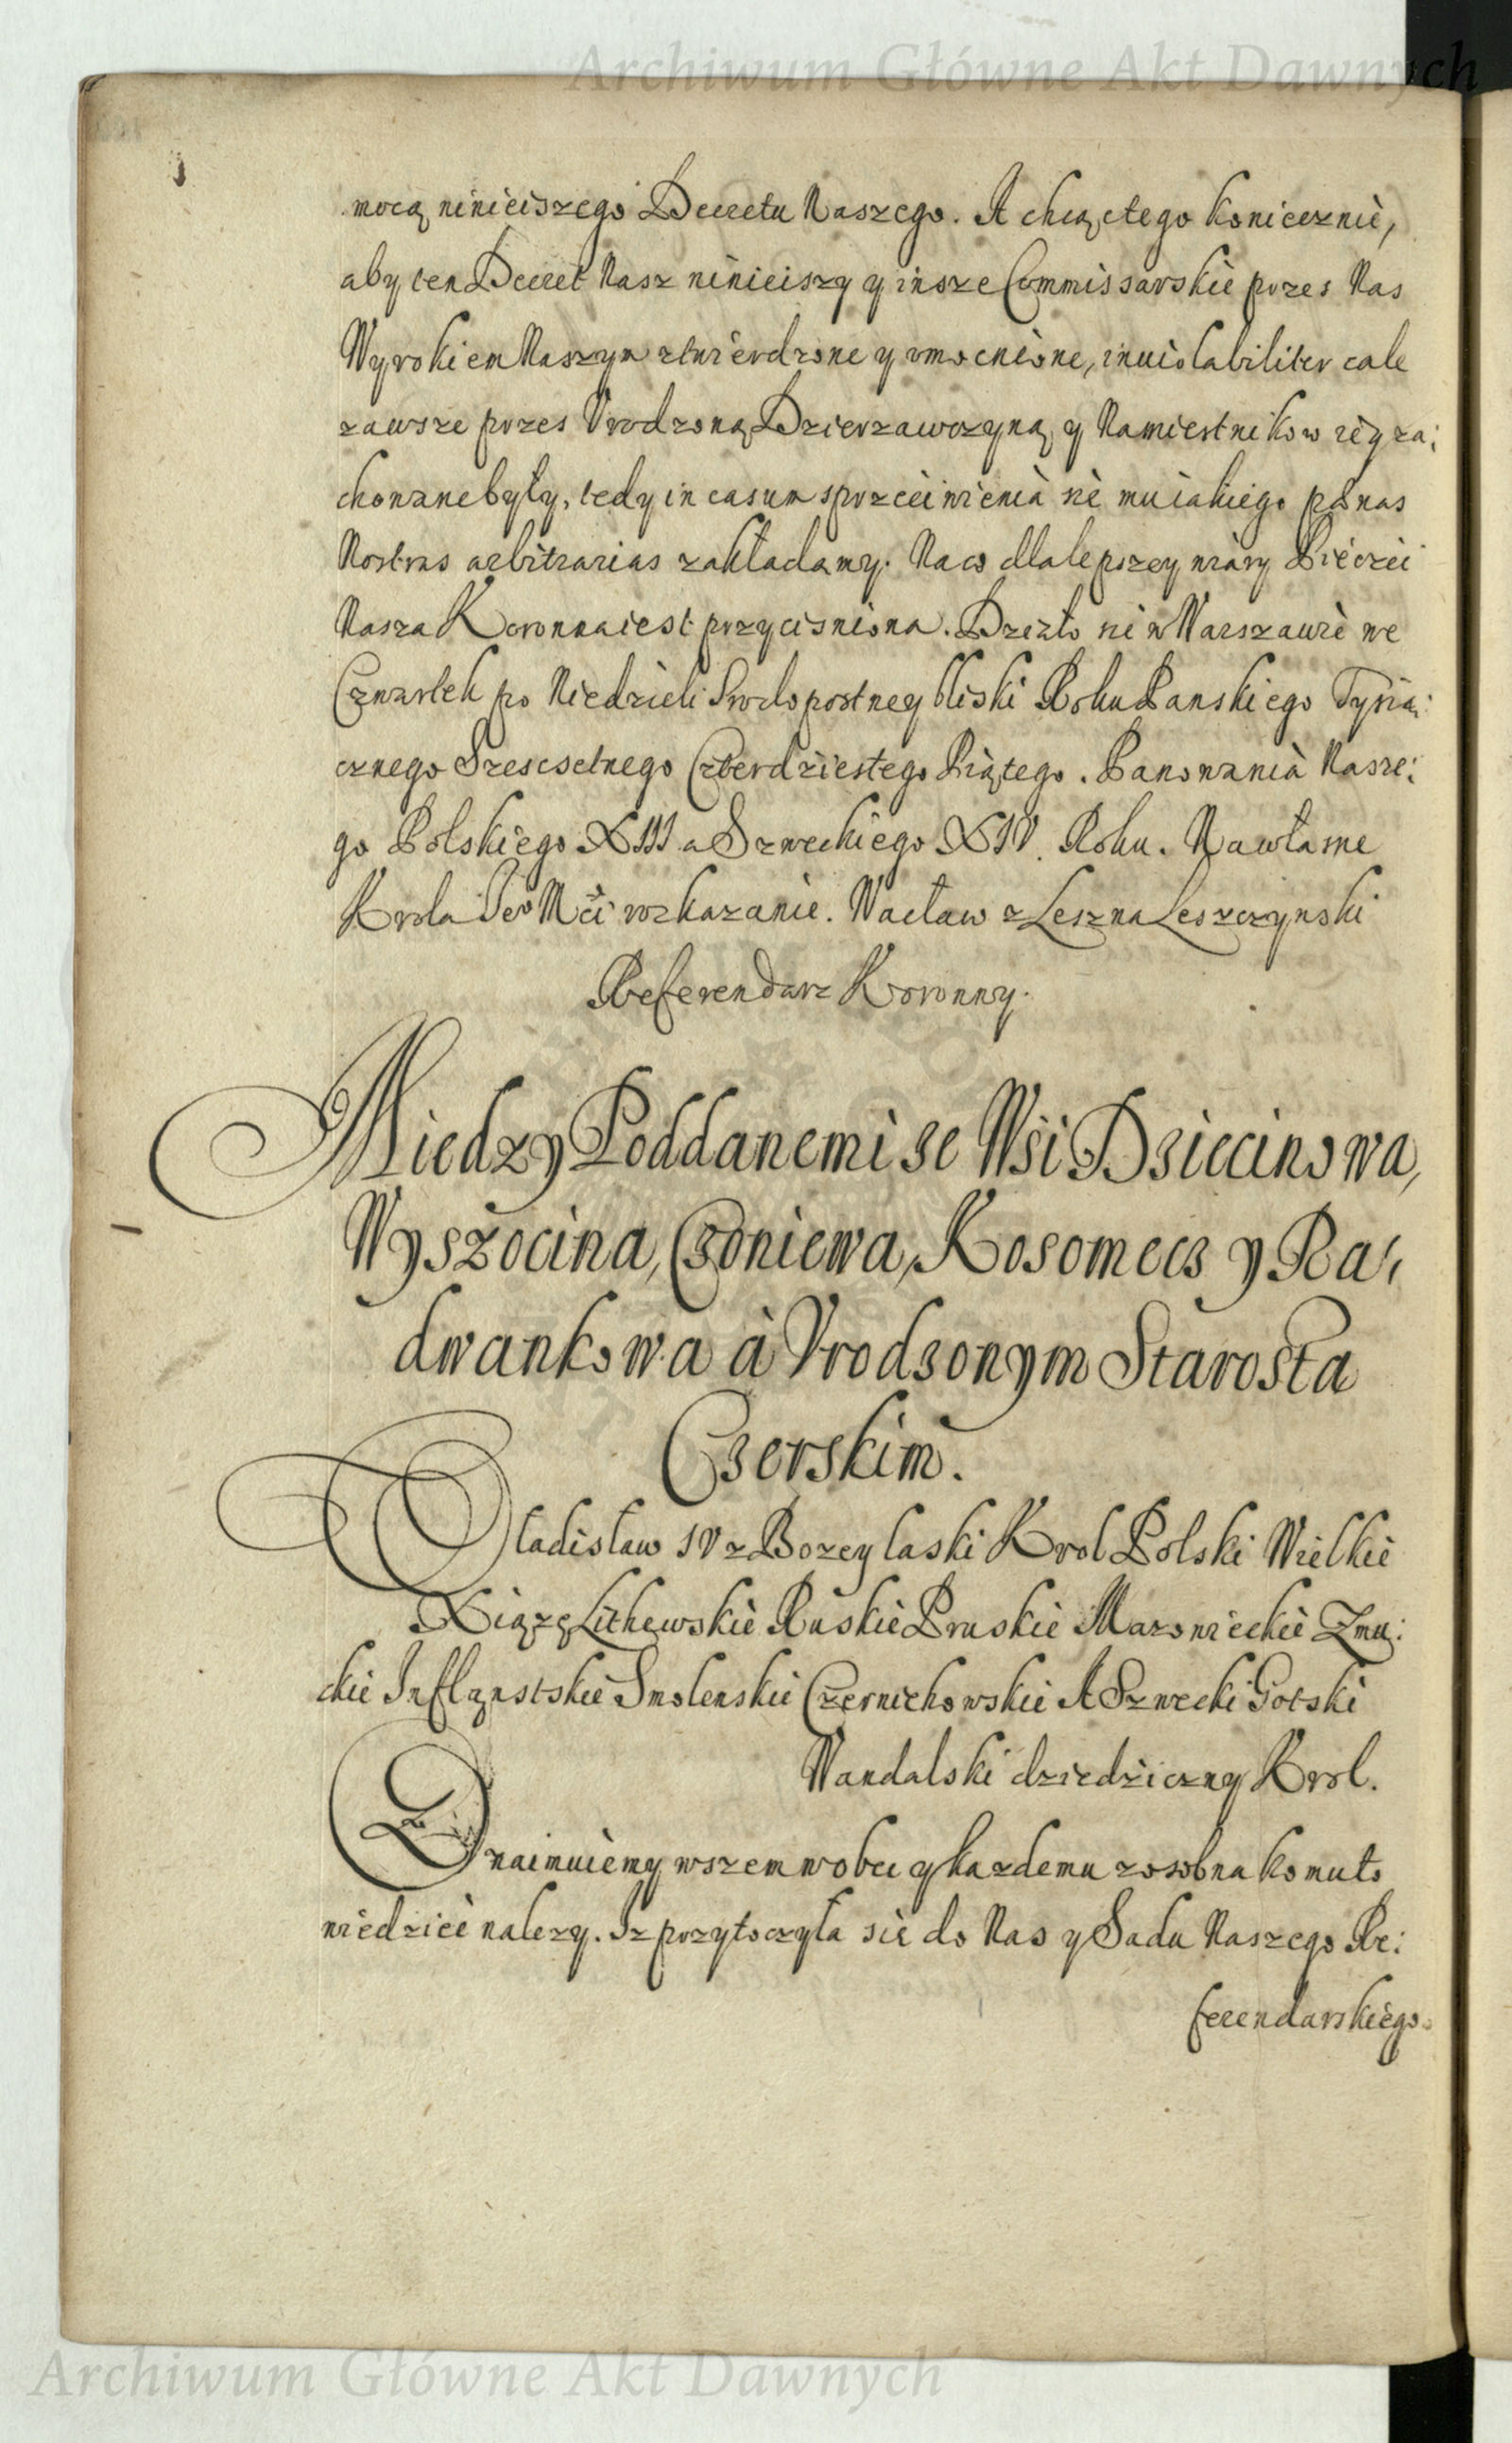 Archiwum Główne Akt Dawnych
mocą ninieiszego Decretu Naszego. A chcąc tego koniecznie,
aby ten Decret Nasz ninieiszy y insze Commissarskie przes Nas
Wyrokiem Naszym ztwierdzone y vmocnione, inuiolabiliter cale
zawsze przes Vrodzoną Dzierzawczyną y Namiestnikow iey za:
chowane były, tedy in casum sprzeciwienia się mu iakiego pænas
Nostras arbitrarias zakładamy. Na co dla lepszey wiary Pieczęć
Nasza Koronna iest przycisniona. Dzieło się w Warszawie we
Czwartek po Niedzieli Srodopostney bliski Roku Panskiego Tysią:
cznego Szescsetnego Czterdziestego Piątego. Panowania Nasze:
go Polskiego XIII a Szweckiego XIV. Roku. Na własne
Krola Jeo Mći roskazanie. Wacław z Leszna Leszczynski
Referendarz Koronny.
Miedzy Poddanemi ze Wsi Dziecinowa,
Wyszocina, Czoniewa, Kosomecz y Ra:
dwankowa à Vrodzonym Starosta
Czerskim.
Vładisław IV z Bozey laski Krol Polski Wielkie
Xiązę Lithewskie Ruskie Pruskie Mazowieckie Zmu:
ckie Infląnstskie Smolenskie Czernichowskie A Szwecki Gotski
Wandalski dziedziczny Krol.
Oznaimuiemy wszem wobec y kazdemu zosobna komu to
wiedziec nalezy. Iz przytoczyła się do Nas y Sadu Naszego Re:
ferendarskiego
Archiwum Główne Akt Dawnych